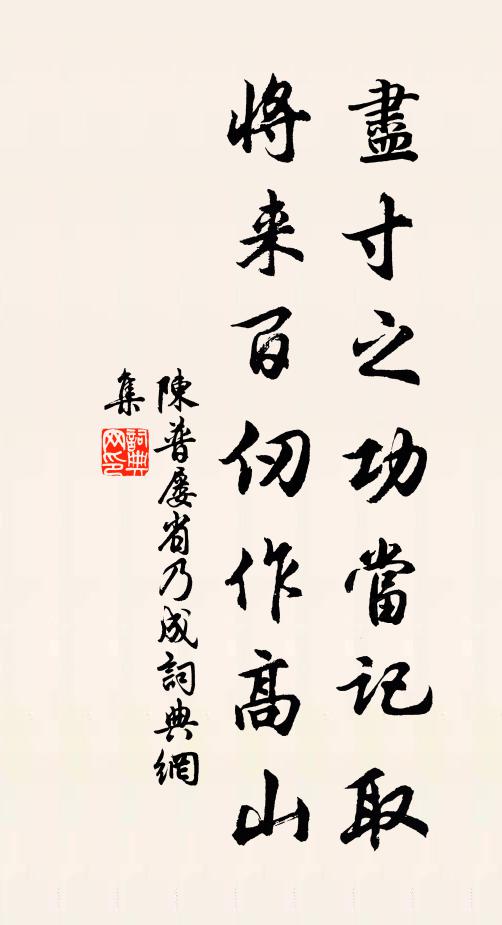 盡寸之功當記取
将来百仞作高山
陳普屢省乃成詞典網
集
詞典
网印